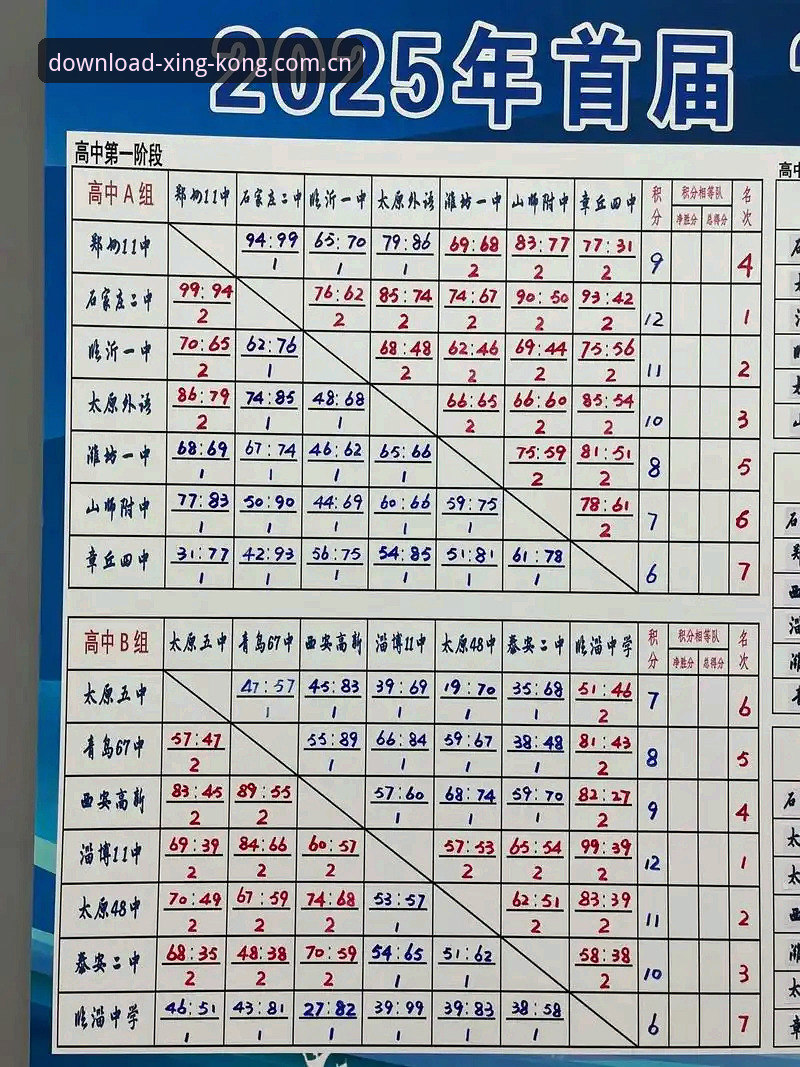 download-xing-kong.com.cn
2025年首届
高中第一阶段
高中A组 郑州11中 石家庄二中 临沂一中 太原外语 潍坊一中 山师附中 章丘四中 积分 积分相等队 净胜分 总得分 名次
郑州11中 94:99 65:70 79:86 69:68 83:77 77:31 9 4
1 1 1 2 2 2
石家庄二中 99:94 76:62 85:74 74:67 90:50 93:42 12 1
2 2 2 2 2 2
临沂一中 70:65 62:76 68:48 62:46 69:44 75:56 11 2
2 1 2 2 2 2
太原外语 86:79 74:85 48:68 66:65 66:60 85:54 10 3
2 1 1 2 2 2
潍坊一中 68:69 67:74 46:62 65:66 75:59 81:51 8 5
1 1 1 1 2 2
山师附中 77:83 50:90 44:69 60:66 59:75 78:61 7 6
1 1 1 1 1 2
章丘四中 31:77 42:93 56:75 54:85 51:81 61:78 6 7
1 1 1 1 1 1
高中B组 太原五中 青岛67中 西安高新 淄博11中 太原48中 泰安二中 临淄中学 积分 积分相等队 净胜分 总得分 名次
太原五中 47:57 45:83 39:69 19:70 35:68 51:46 7 6
1 1 1 1 1 2
青岛67中 57:47 55:89 66:84 59:67 38:48 81:43 8 5
2 1 1 1 1 2
西安高新 83:45 89:55 57:60 68:74 59:70 82:27 9 4
2 2 1 1 1 2
淄博11中 69:39 84:66 60:57 57:53 65:54 99:39 12 1
2 2 2 2 2 2
太原48中 70:49 67:59 74:68 53:57 62:51 83:39 11 2
2 2 2 1 2 2
泰安二中 68:35 48:38 70:59 54:65 51:62 58:38 10 3
2 2 2 1 1 2
临淄中学 46:51 43:81 27:82 39:99 39:83 38:58 6 7
1 1 1 1 1 1